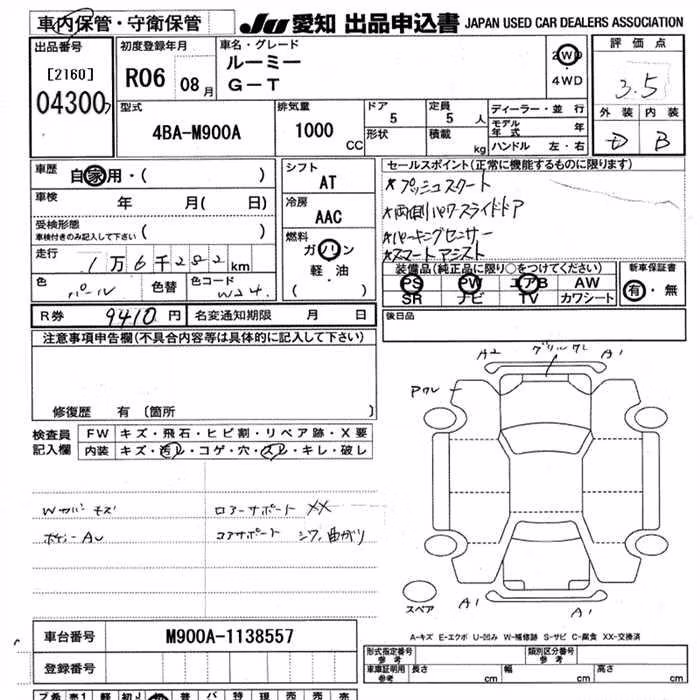 車内保管・守衛保管
JU 愛知 出品申込書 JAPAN USED CAR DEALERS ASSOCIATION
出品番号 [2160] 04300
初度登録年月 R06 08月
車名・グレード ルーミー G-T
2WD・4WD
評価点 3.5
外装 D 内装 B
型式 4BA-M900A
排気量 1000 CC
ドア 5 形状
定員 5 人 積載 kg
ディーラー・並行
モデル年式 年
ハンドル 左・右
車歴 自家用・( )
車検 年 月( 日)
受検形態 車検付きのみ記入して下さい ( )
走行 1万6千282km
色 パール 色替 色コード W24
シフト AT
冷房 AAC
燃料 ガソリン 軽・油 ( )
セールスポイント(正常に機能するものに限ります)
★プッシュスタート
★両側パワースライドドア
★パーキングセンサー
★スマートアシスト
装備品(純正品に限り○をつけてください)
PS PW エアB AW
SR ナビ TV カワシート
新車保証書 有・無
R券 9410円 名変通知期限 月 日
後日品
注意事項申告欄(不具合内容等は具体的に記入して下さい)
修復歴 有 〔箇所 〕
検査員記入欄
FW キズ・飛石・ヒビ割・リペア跡・X要
内装 キズ・汚レ・コゲ・穴・スレ・キレ・破レ
Wカバー キズ ロアーサポート XX
ボディーAU コアサポート シワ、曲がり
A2 グリルワレ A1
Pワレ
スペア
A1 A1
A-キズ E-エクボ U-凹み W-補修跡 S-サビ C-腐食 XX-交換済
車台番号 M900A-1138557
登録番号
型式指定番号 参考 類別区分番号 参考
車車証明用 参考 長さ cm 幅 cm 高さ cm